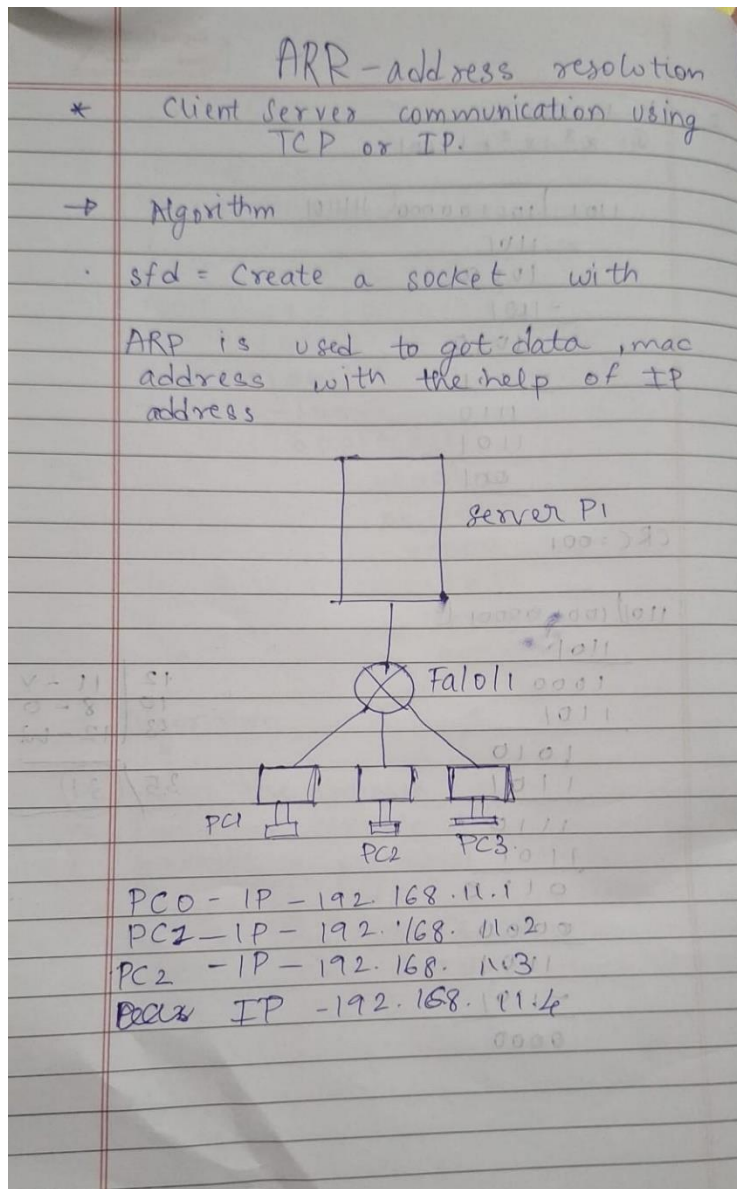 ARR - address resolution
* Client Server communication using
TCP or IP.
→ Algorithm
. sfd = Create a socket with
ARP is used to got data, mac
address with the help of IP
address
server P1
Fa|0|1
PC1
PC2
PC3.
PC0 - IP - 192. 168. 11.1
PC1 - IP - 192. 168. 11.2
PC2 - IP - 192. 168. 11.3
IP - 192. 168. 11.4